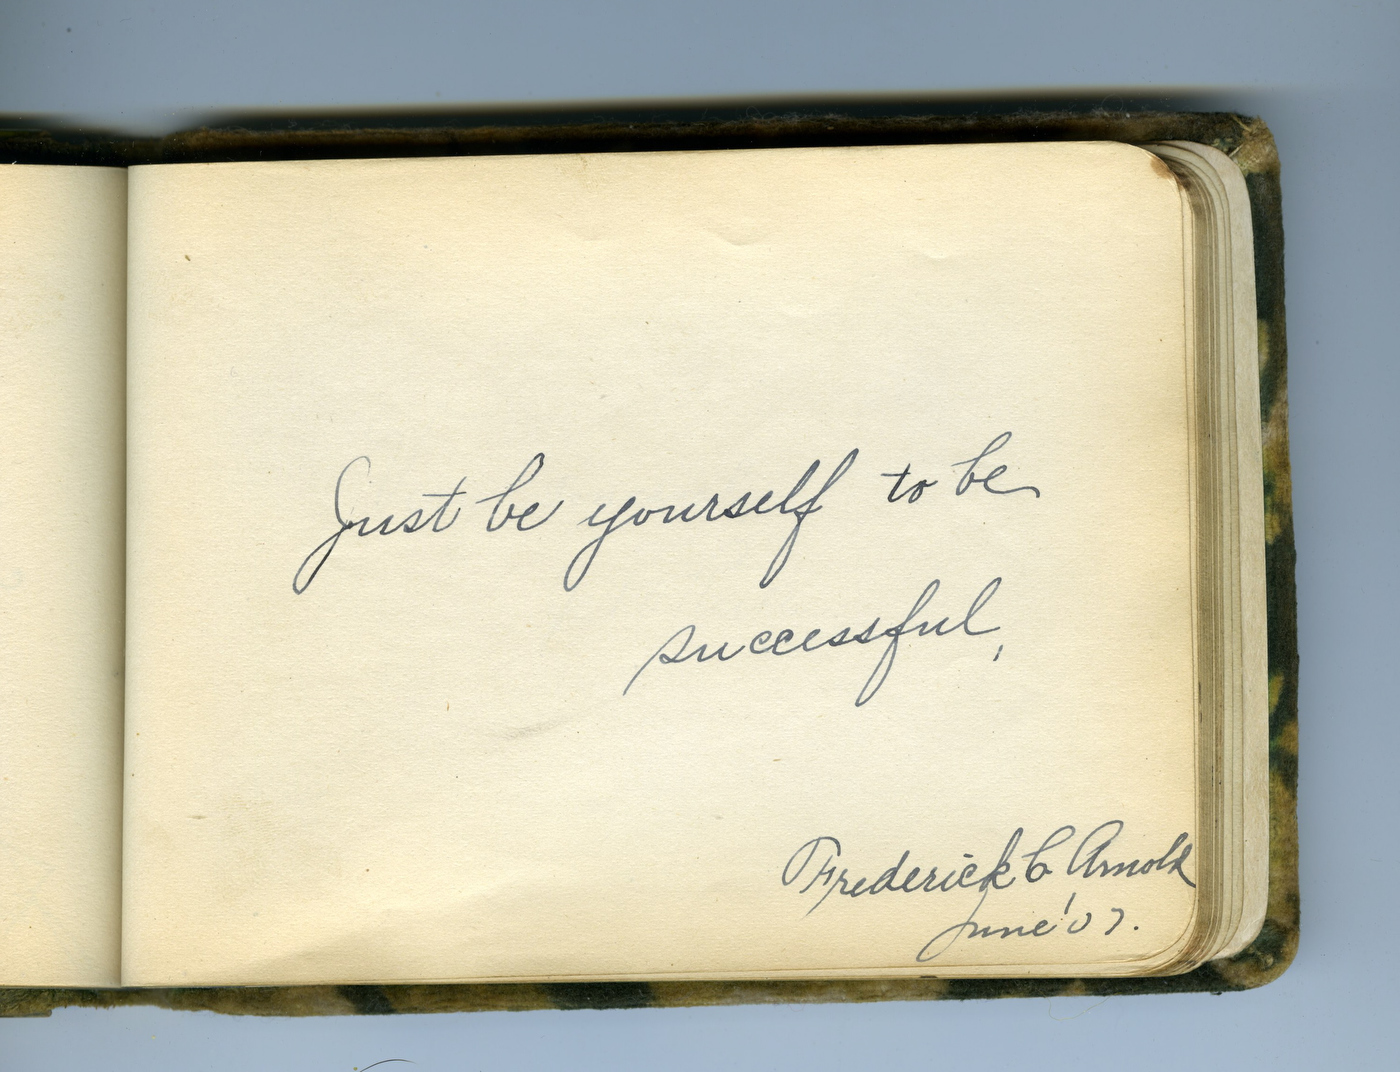 Just be yourself to be
successful,
Frederick C Arnold
June '07.